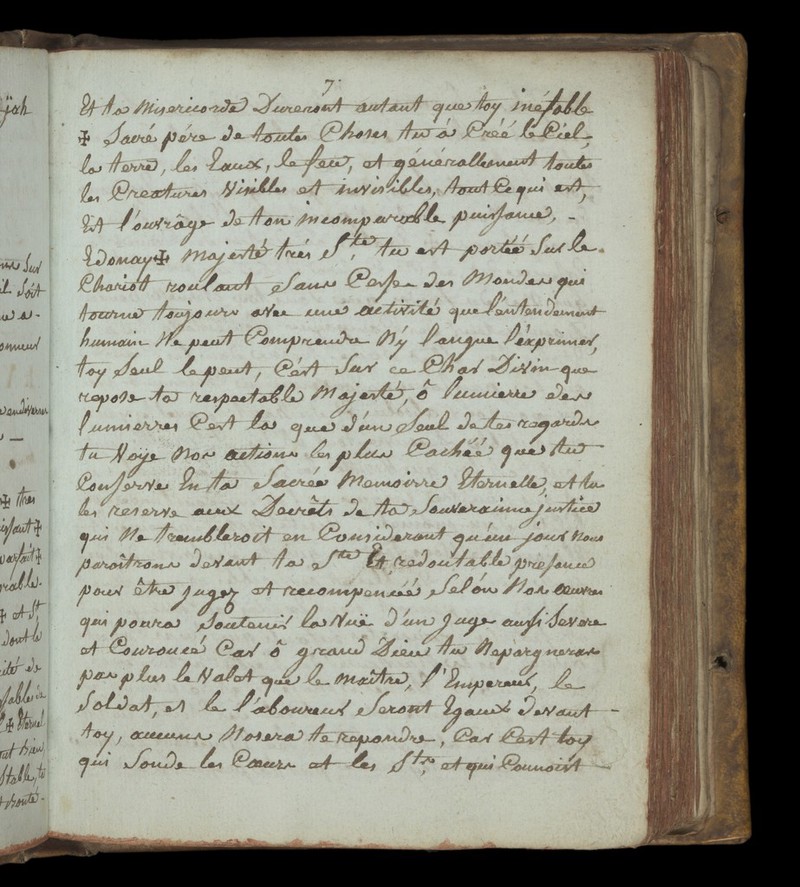 7.
Et ta Misericorde Dureront autant que toy inéfable
✠ Sacré pére de toutes Choses tu à Créé le Ciel,
la terre, les Eaux, le feu, et généralement toutes
les Creatures Visibles et invisibles, tout Ce qui est,
Est l'ouvrâge de ton incomparable puissance, -
Edonay ✠ Majesté trés Ste. tu est portéé Sur le
Chariot roulant Sans Cesse des Mondes qui
tourne toujours avec une activité que l'entendement
humain Ne peut Comprendre Ny langue l'éxprimer,
toy Seul le peut, C'ést Sur ce Char Divin que
repose ta respectable Majesté, ô lumierre des
lumierres C'est la que d'un Seul de tes regards
tu Voÿe Nos actions les plus Cachéé que tu
Conserve En ta Sacrée Memoirre Eternelle, et tu
les reserve aux Decrêts de ta Souverainne justice
qui Ne trembleroit en Considerant qu'un jour Nous
paroîtrons devant ta Ste Et redoutable presence
pour être jugez et recompencéé Selón Nos œuvres
qui poura Soutenir la Vuë d'un juge aussi Severe
et Couroucé Car ô grand Dieu tu N'epargneras
pas plus le Valet que le Maître, l'Empereur, le
Soldat, et le laboureur Seront Egaux devant -
toy, aucuns N'osera te repondre, Car C'est toy
qui Sonde les Cœurs et les Sts. et qui Connoist -
ÿah
Sur
Soit
onneur
✠ tres
issant ✠
parfait ✠
rable.
✠ et St
dont le
cité de
✠ Eternel
Bien
Stable, ta
Bonté -